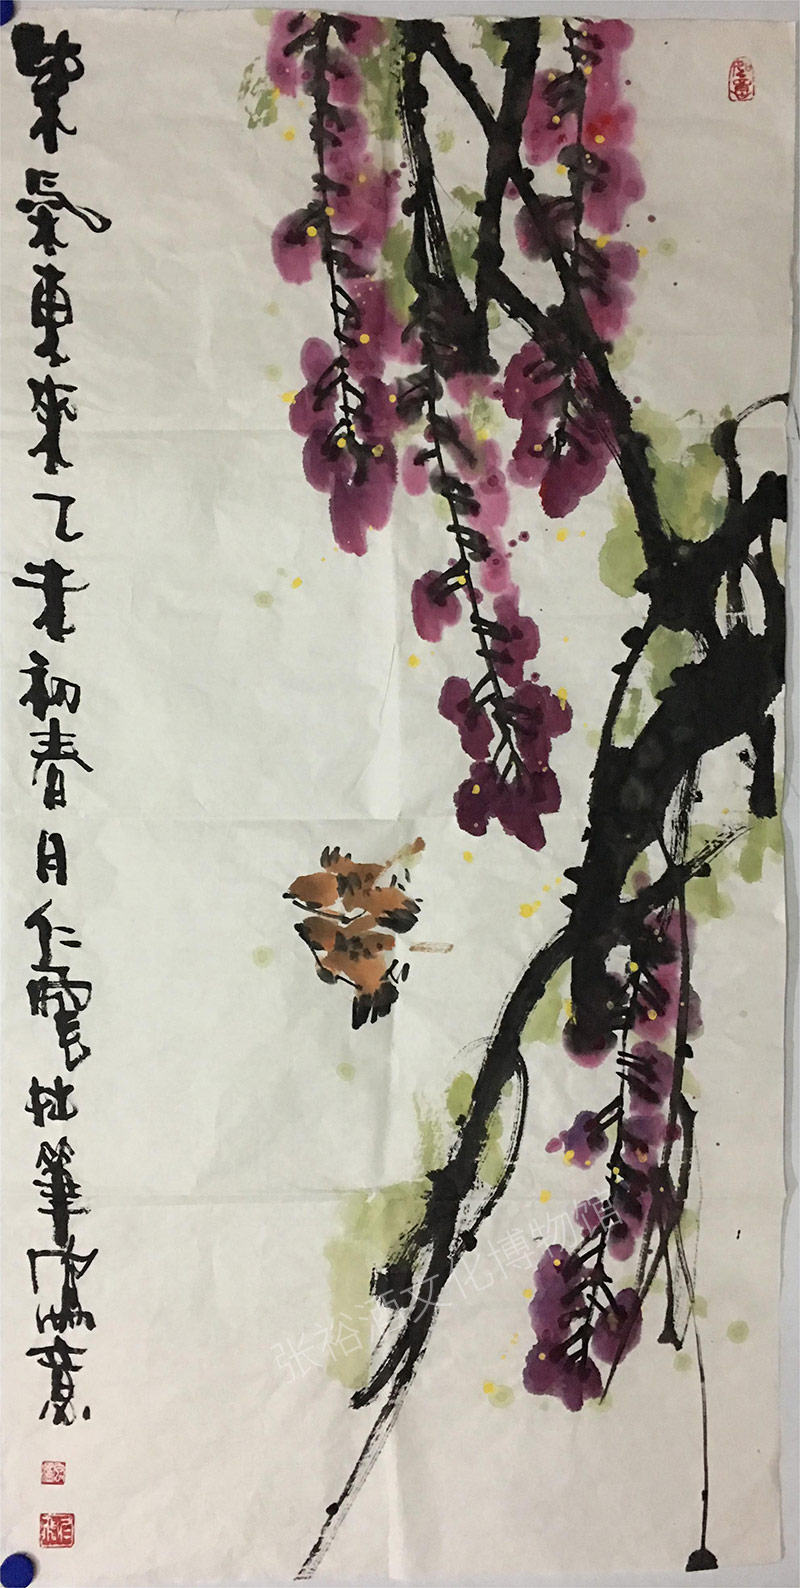 紫氣東來乙未初春月仁震拙筆寫意
张裕酒文化博物馆